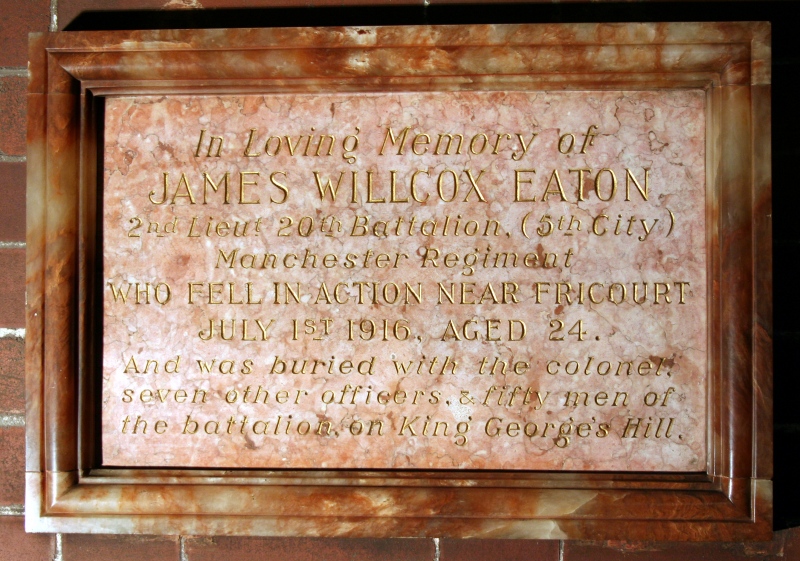 In Loving Memory of
JAMES WILLCOX EATON
2nd Lieut 20th Battalion, (5th City)
Manchester Regiment
WHO FELL IN ACTION NEAR FRICOURT
JULY 1ST 1916, AGED 24.
And was buried with the colonel,
seven other officers, & fifty men of
the battalion, on King George's Hill.